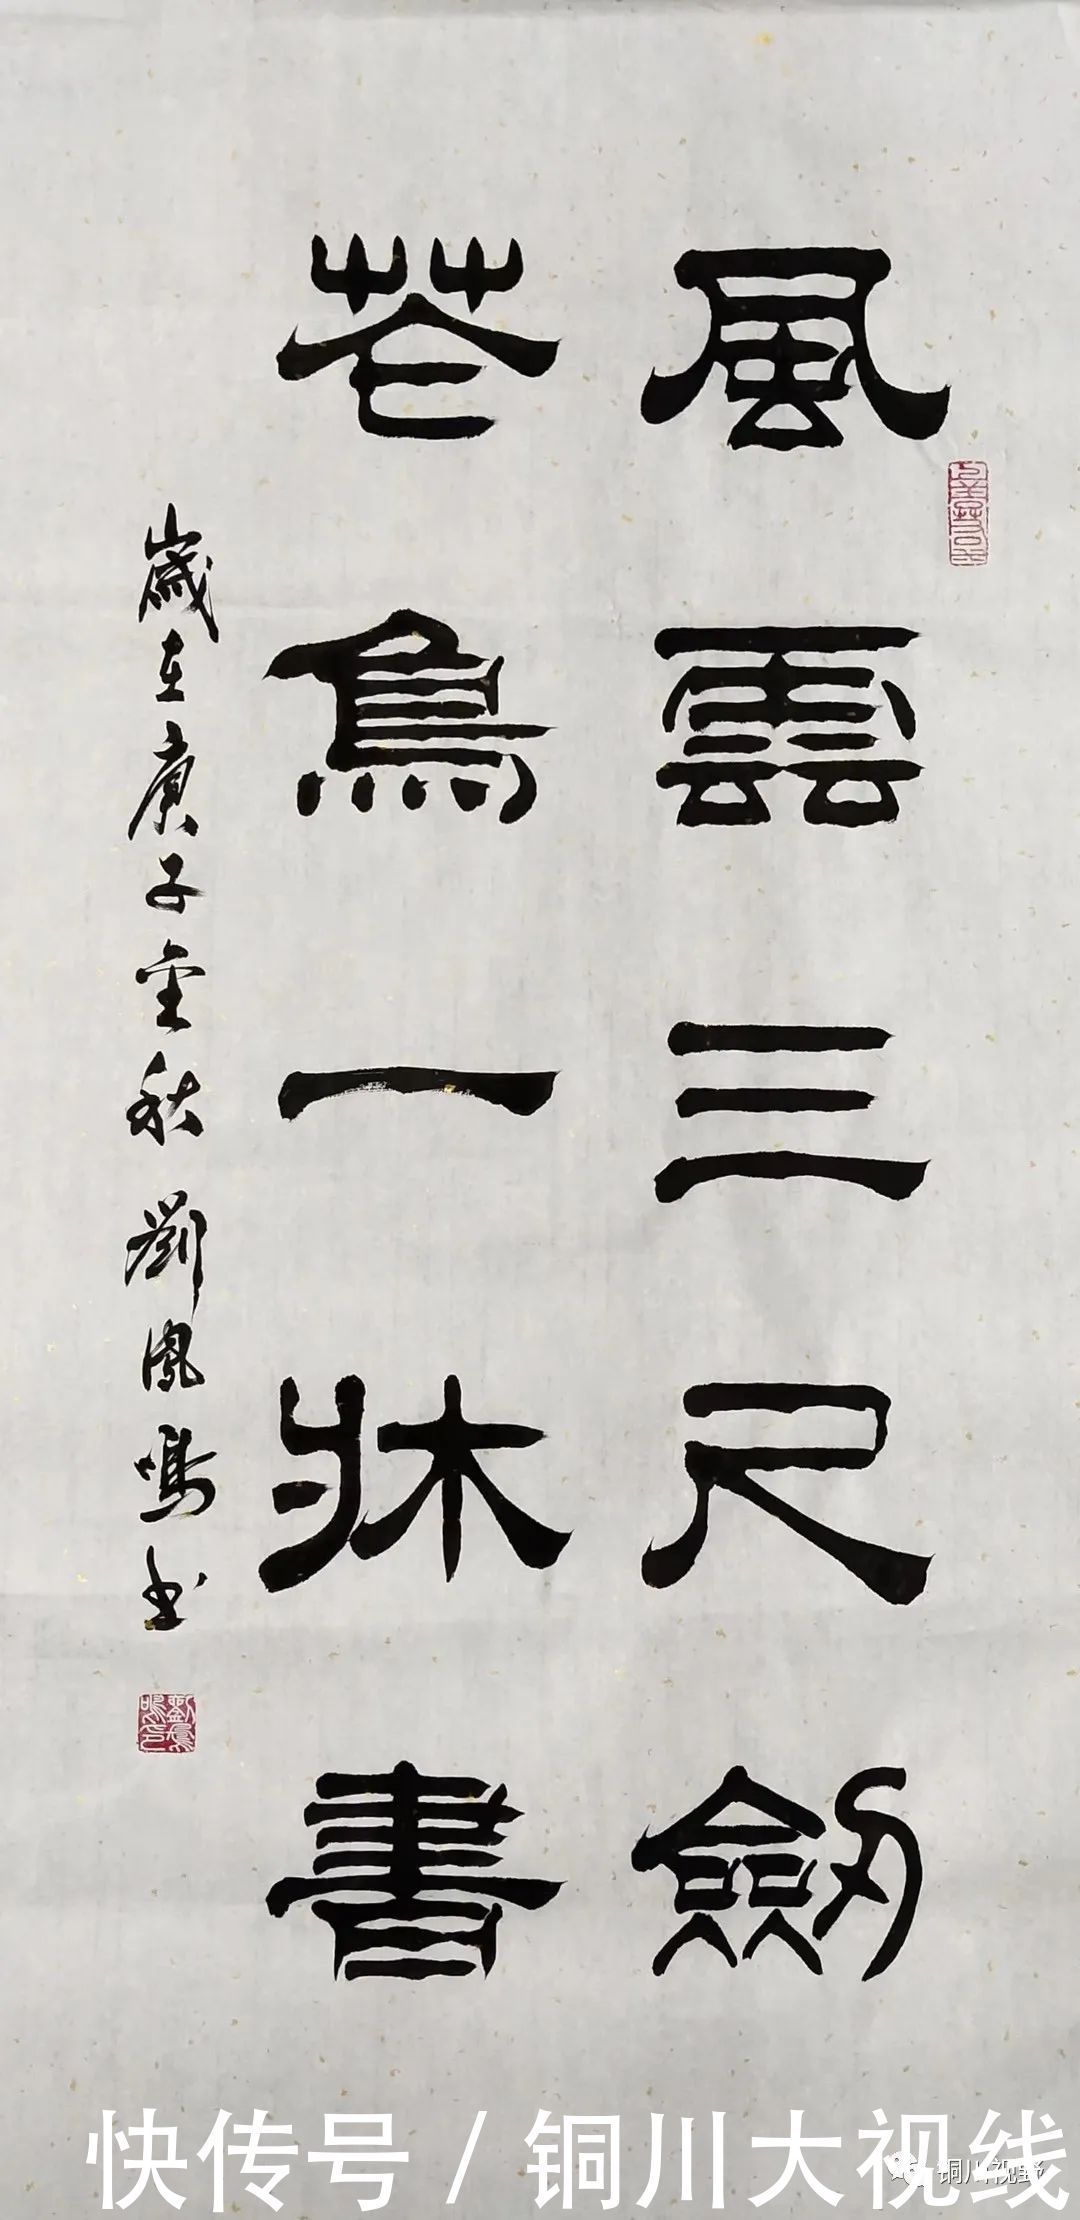 風雲三尺劒
花鳥一牀書
歲在庚子金秋 劉鳳鳴书
快传号 / 铜川大视线
铜川视野